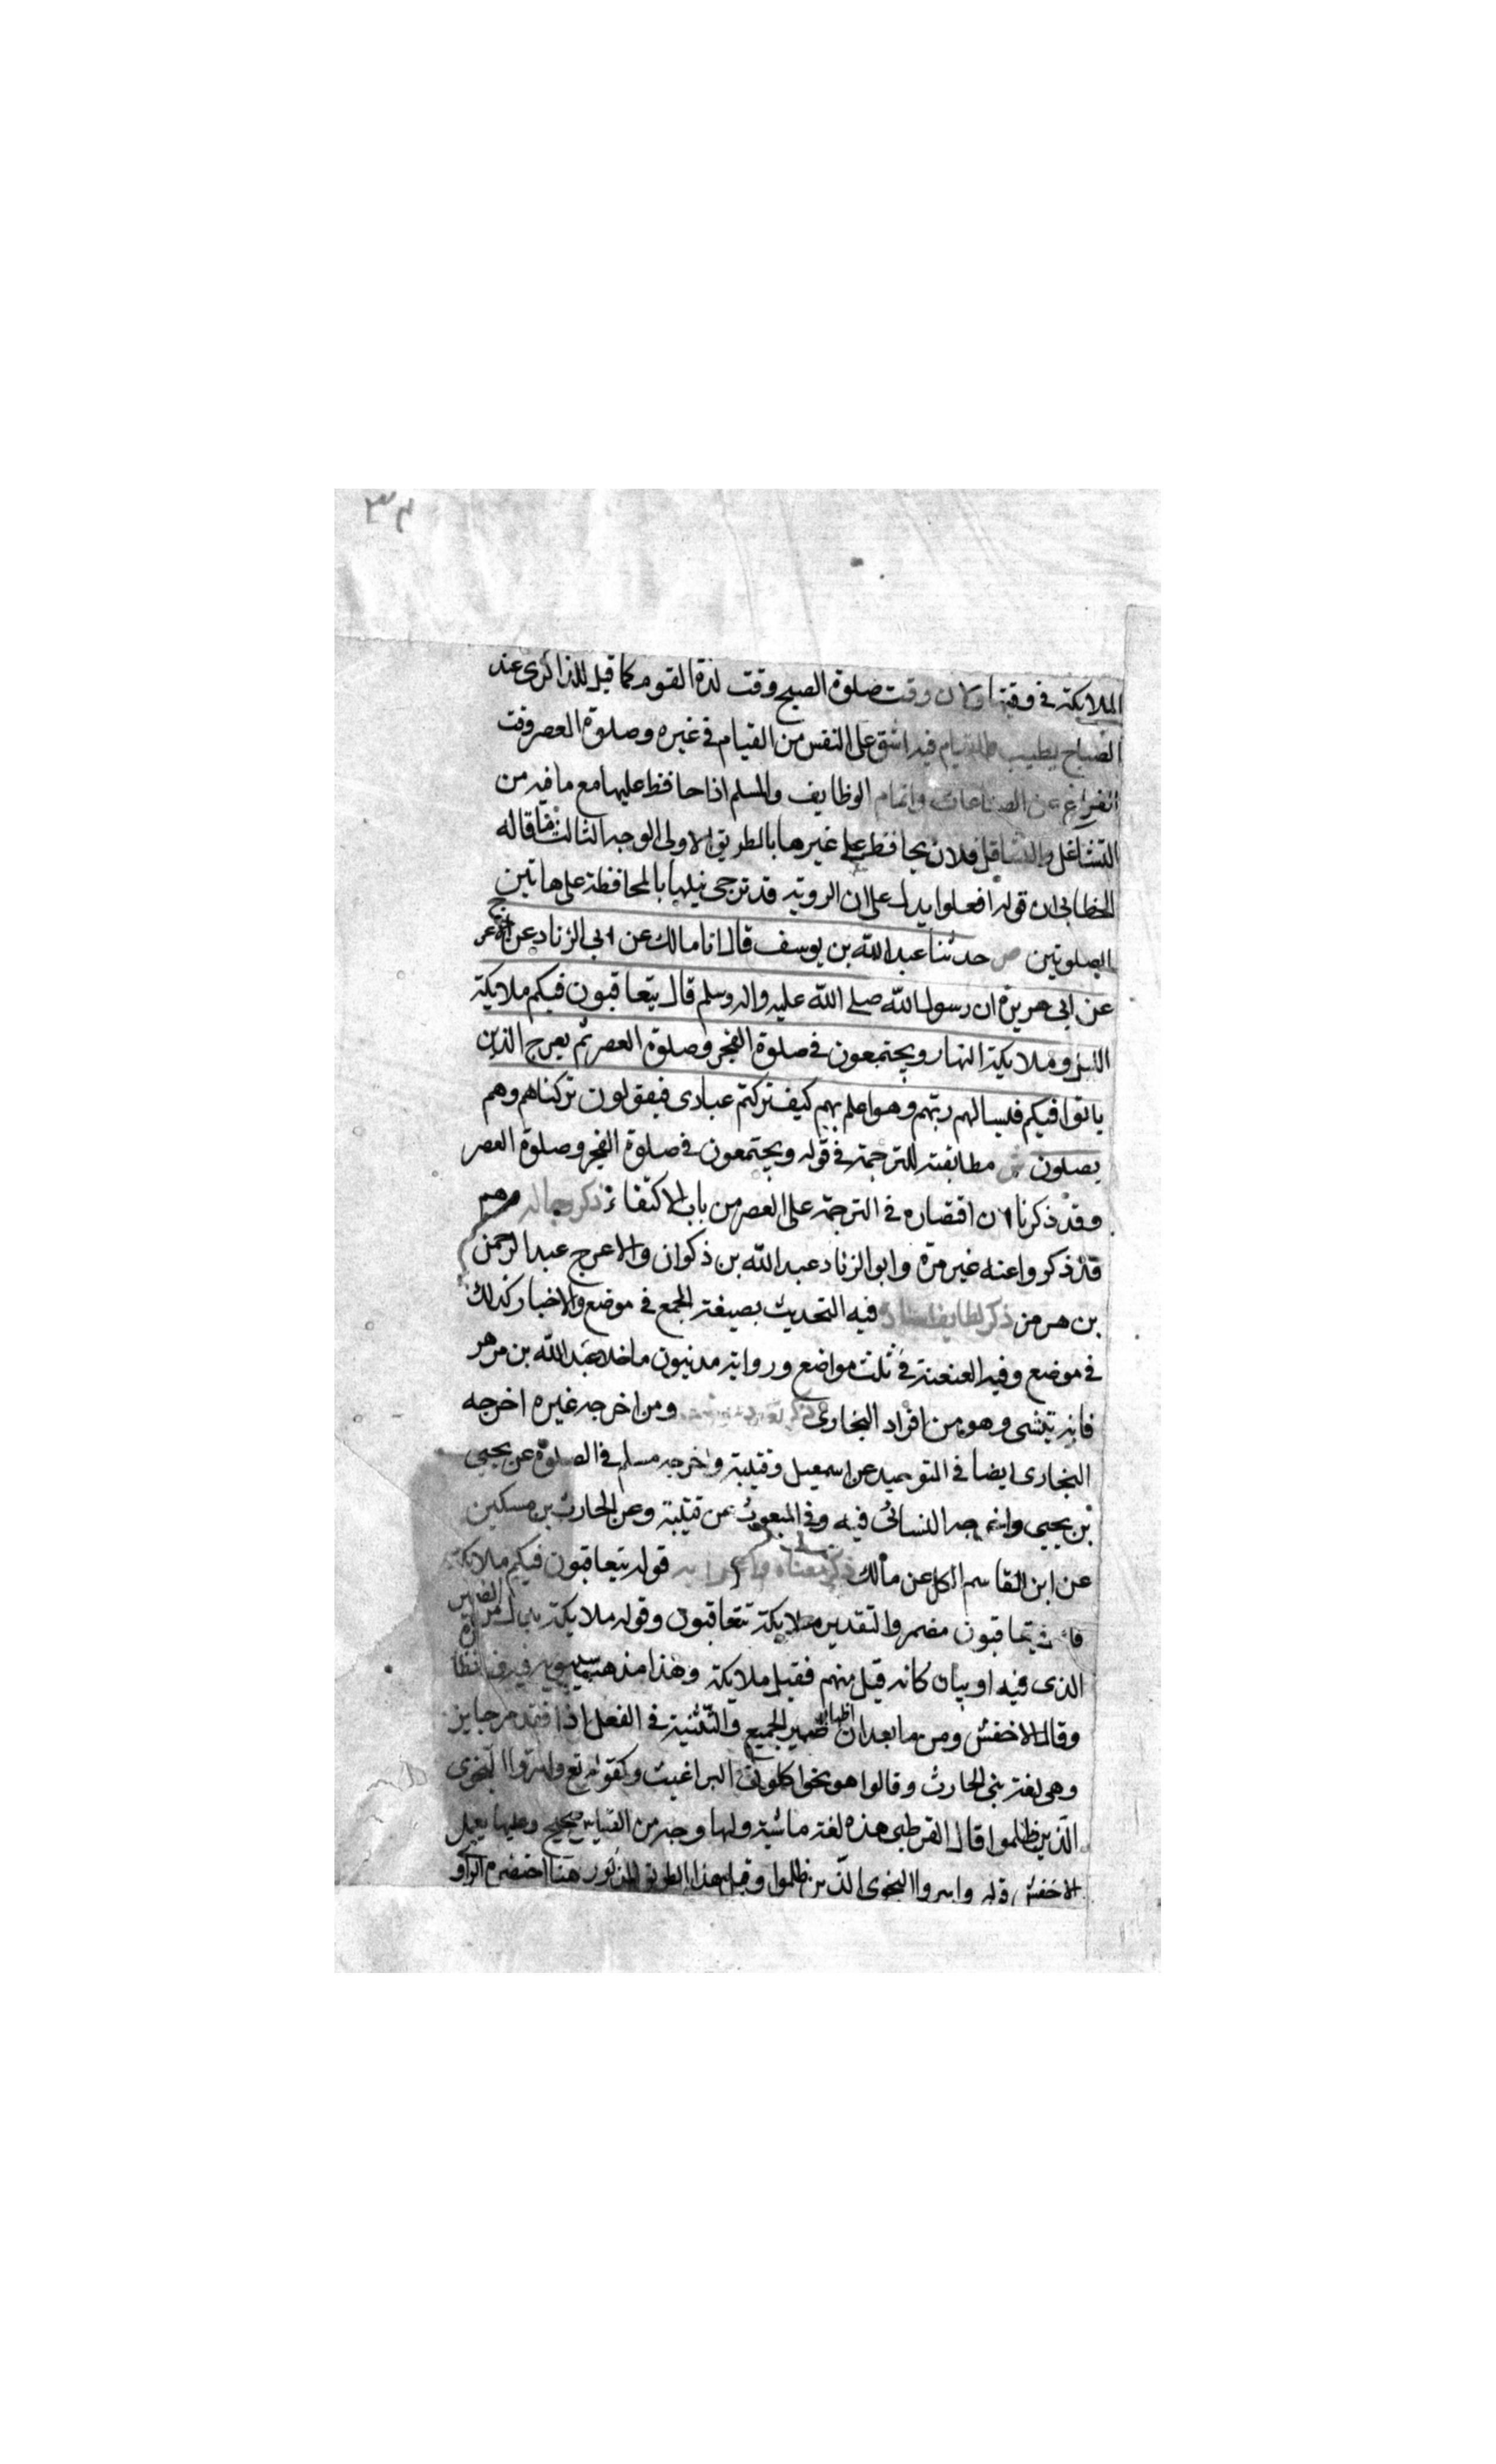 ٣٤
الملايكة في وقتها وكان وقت صلوة الصبح وقت لذة القوم كما قيل للذا الكرى عند
الصباح يطيب والقيام فيه اشق على النفس من القيام في غيره وصلوة العصر وقت
الفراغ عن الصناعات واتمام الوظايف والمسلم اذا حافظ عليها مع ما فيه من
التشاغل والتثاقل فلان يحافظ على غيرها بالطريق الاولى الوجه الثالث فيما قاله
الخطابي ان قوله افعلوا يدل على ان الروية قد ترجى نيلها بالمحافظة على هاتين
الصلوتين ص حدثنا عبد الله بن يوسف قال انا مالك عن ابي الزناد عن الاعرج
عن ابي هريرة ان رسول الله صلى الله عليه واله وسلم قال يتعاقبون فيكم ملايكة
الليل وملايكة النهار ويجتمعون في صلوة الفجر وصلوة العصر ثم يعرج الذين
باتوا فيكم فليسالهم ربهم وهو اعلم بهم كيف تركتم عبادى فيقولون تركناهم وهم
يصلون ش مطابقته للترجمة في قوله ويجتمعون في صلوة الفجر وصلوة العصر
وقد ذكرنا ان اقتصاره في الترجمة على العصر من باب الاكتفاء ذكر رجاله وهم
قد ذكروا عنه غير مرة وابو الزناد عبد الله بن ذكوان والاعرج عبد الرحمن
بن هرمز ذكر لطايف اسناده فيه التحديث بصيغة الجمع في موضع والاخبار كذلك
في موضع وفيه العنعنة في ثلث مواضع ورواته مدنيون ما خلا عبد الله بن
فانه تنسى وهو من افراد البخارى ذكر تعدد ومن اخرجه غيره اخرجه
البخارى ايضا في التوحيد عن اسمعيل وقتيبة واخرجه مسلم في الصلوة عن يحيى
بن يحيى واخرجه النسائى فيه وفي البعوث عن قتيبة وعن الحارث بن مسكين
عن ابن القاسم الكل عن مالك ذكر معناه واعرابه قوله يتعاقبون فيكم ملايكة
يتعاقبون مضمر والتقدير ملايكة تتعاقبون وقوله ملايكة بدل من الضمير
الذى فيه او بيان كانه قيل منهم فقيل ملايكة وهذا مذهب سيبويه فيه
وقال الاخفش ومن ما بعد ان اظهار ضمير الجميع والتثنية في الفعل اذا تقدم جايز
وهي لغة بنى الحارث وقالوا هو نحو اكلونى البراغيث وكقوله تع واسروا النجوى
الذين ظلموا قال القرطبى هذه لغة ماشية ولها وجه من القياس صحيح وعليها يحمل
الاخفش قوله واسروا النجوى الذين ظلموا وقيل هذا الطريق المذكور هنا اختصره الراو